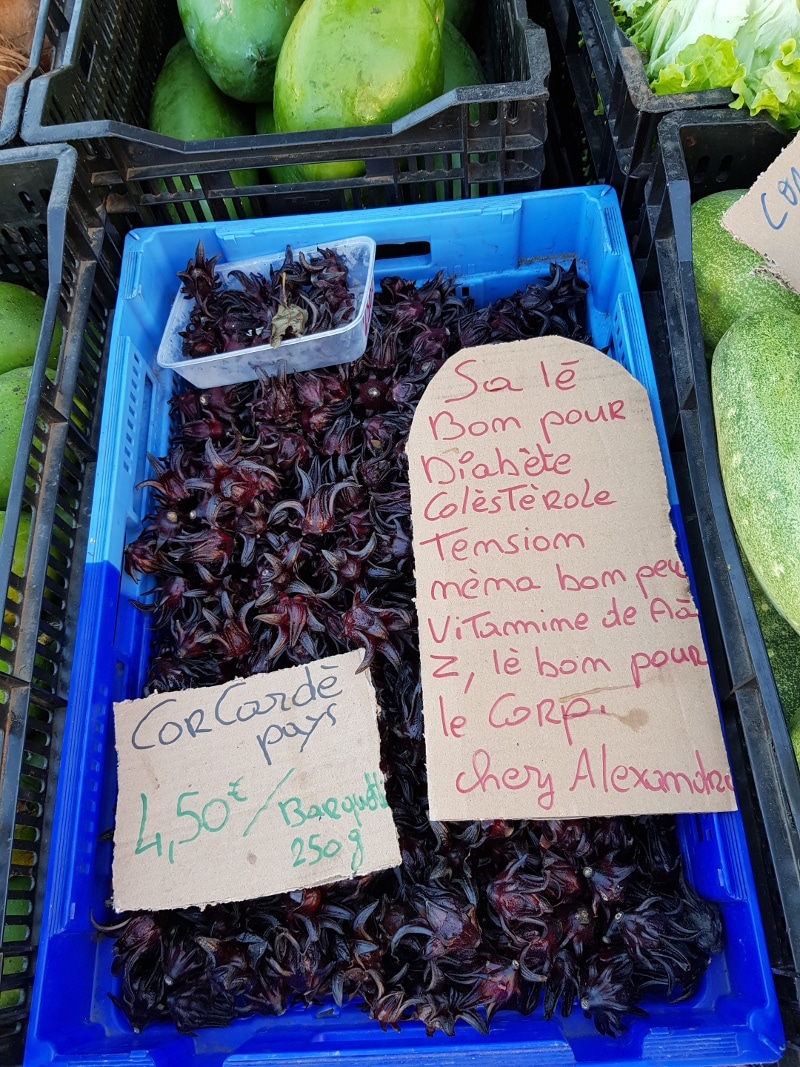 Sa lé
Bom pour
Diabète
Colèstèrole
Temsiom
mèma bom peu
Vitamime de Aà
Z, lè bom pour
le Corp.
chez Alexamdre
CorCardè
pays
4,50€/Barquette
250g
Co